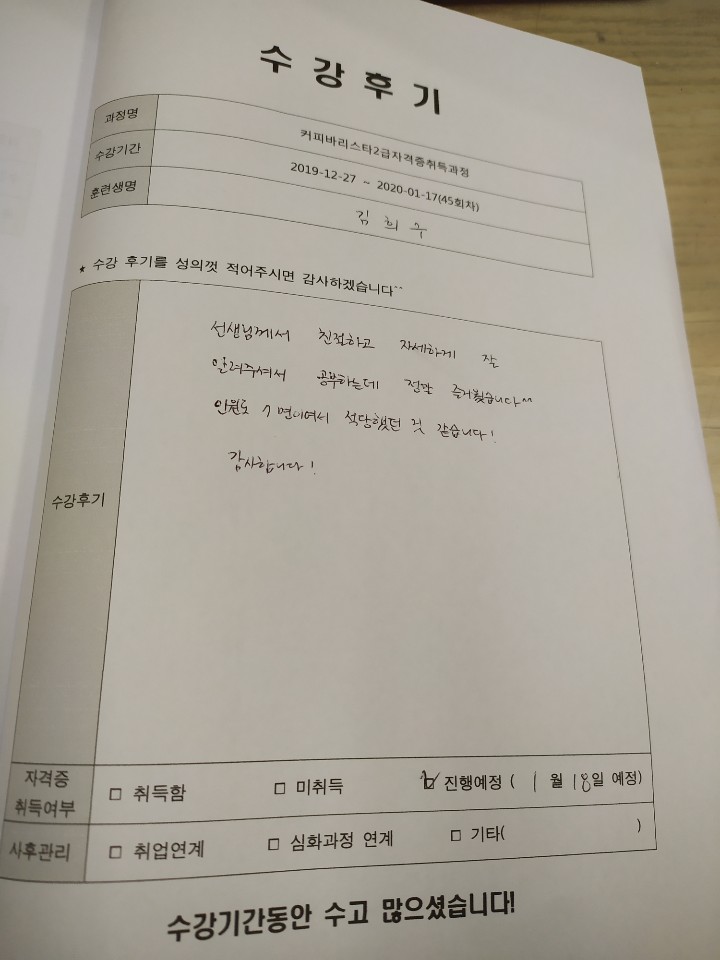 수강후기
과정명 커피바리스타2급자격증취득과정
수강기간 2019-12-27 ~ 2020-01-17(45회차)
훈련생명 김희주
★ 수강 후기를 성의껏 적어주시면 감사하겠습니다^^
선생님께서 친절하고 자세하게 잘
알려주셔서 공부하는데 정말 즐거웠습니다^^
인원도 7명이여서 적당했던 것 같습니다!
감사합니다!
수강후기
자격증 취득여부 □ 취득함 □ 미취득 ☑ 진행예정 ( 1월 18일 예정)
사후관리 □ 취업연계 □ 심화과정 연계 □ 기타( )
수강기간동안 수고 많으셨습니다!